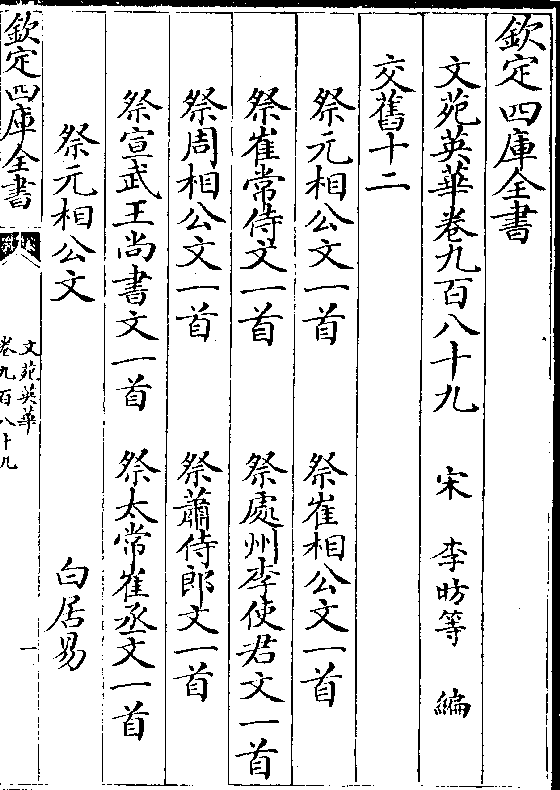 欽定四庫全書
文苑英華卷九百八十九 宋 李昉等 編
交舊十二
祭元相公文一首 祭崔相公文一首
祭崔常侍文一首 祭處州李使君文一首
祭周相公文一首 祭蕭侍郎文一首
祭宣武王尚書文一首 祭太常崔丞文一首
祭元相公文 白居易
欽定四庫全書
文苑英華
卷九百八十九
一